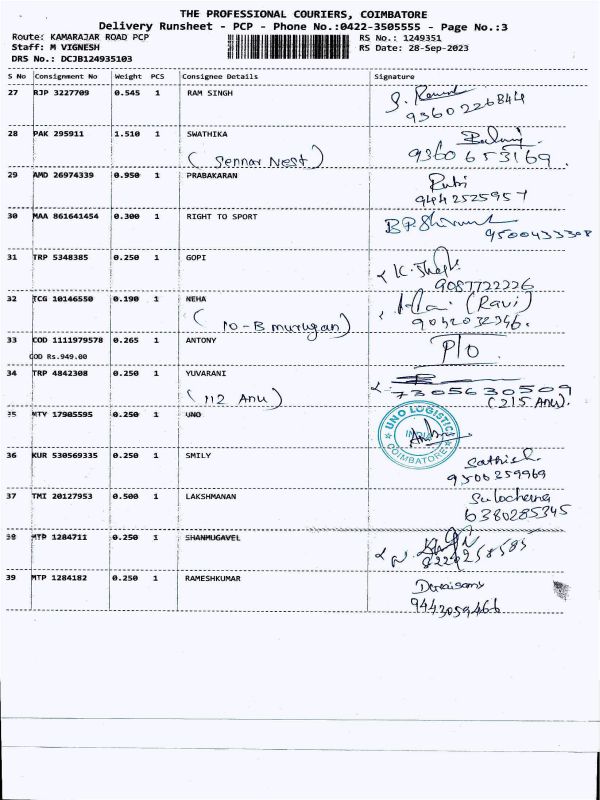 THE PROFESSIONAL COURIERS, COIMBATORE
Delivery Runsheet - PCP - Phone No.:0422-3505555 - Page No.:3
Route: KAMARAJAR ROAD PCP RS No.: 1249351
Staff: M VIGNESH RS Date: 28-Sep-2023
DRS No.: DCJB124935103
S No Consignment No Weight PCS Consignee Details Signature
27 RJP 3227709 0.545 1 RAM SINGH
9360226844
28 PAK 295911 1.510 1 SWATHIKA
(Sennar Nest) 9360653169.
29 AMD 26974339 0.950 1 PRABAKARAN
9442525957
30 MAA 861641454 0.300 1 RIGHT TO SPORT
9500433308
31 TRP 5348385 0.250 1 GOPI
9087722226
32 TCG 10146550 0.190 1 NEHA (Ravi)
(10-B murugan) 9042032346.
33 COD 1111979578 0.265 1 ANTONY P/o
COD Rs.949.00
34 TRP 4842308 0.250 1 YUVARANI 7305630509
(112 Anu) (215 Anu).
35 MTY 17905595 0.250 1 UNO
UNO LOGISTIC
INDIA
COIMBATORE
36 KUR 530569335 0.250 1 SMILY Sathish
9500259969
37 TMI 20127953 0.500 1 LAKSHMANAN Sulochana
6380285345
38 MTP 1284711 0.250 1 SHANMUGAVEL
39 MTP 1284182 0.250 1 RAMESHKUMAR Doraisamy
9443059466